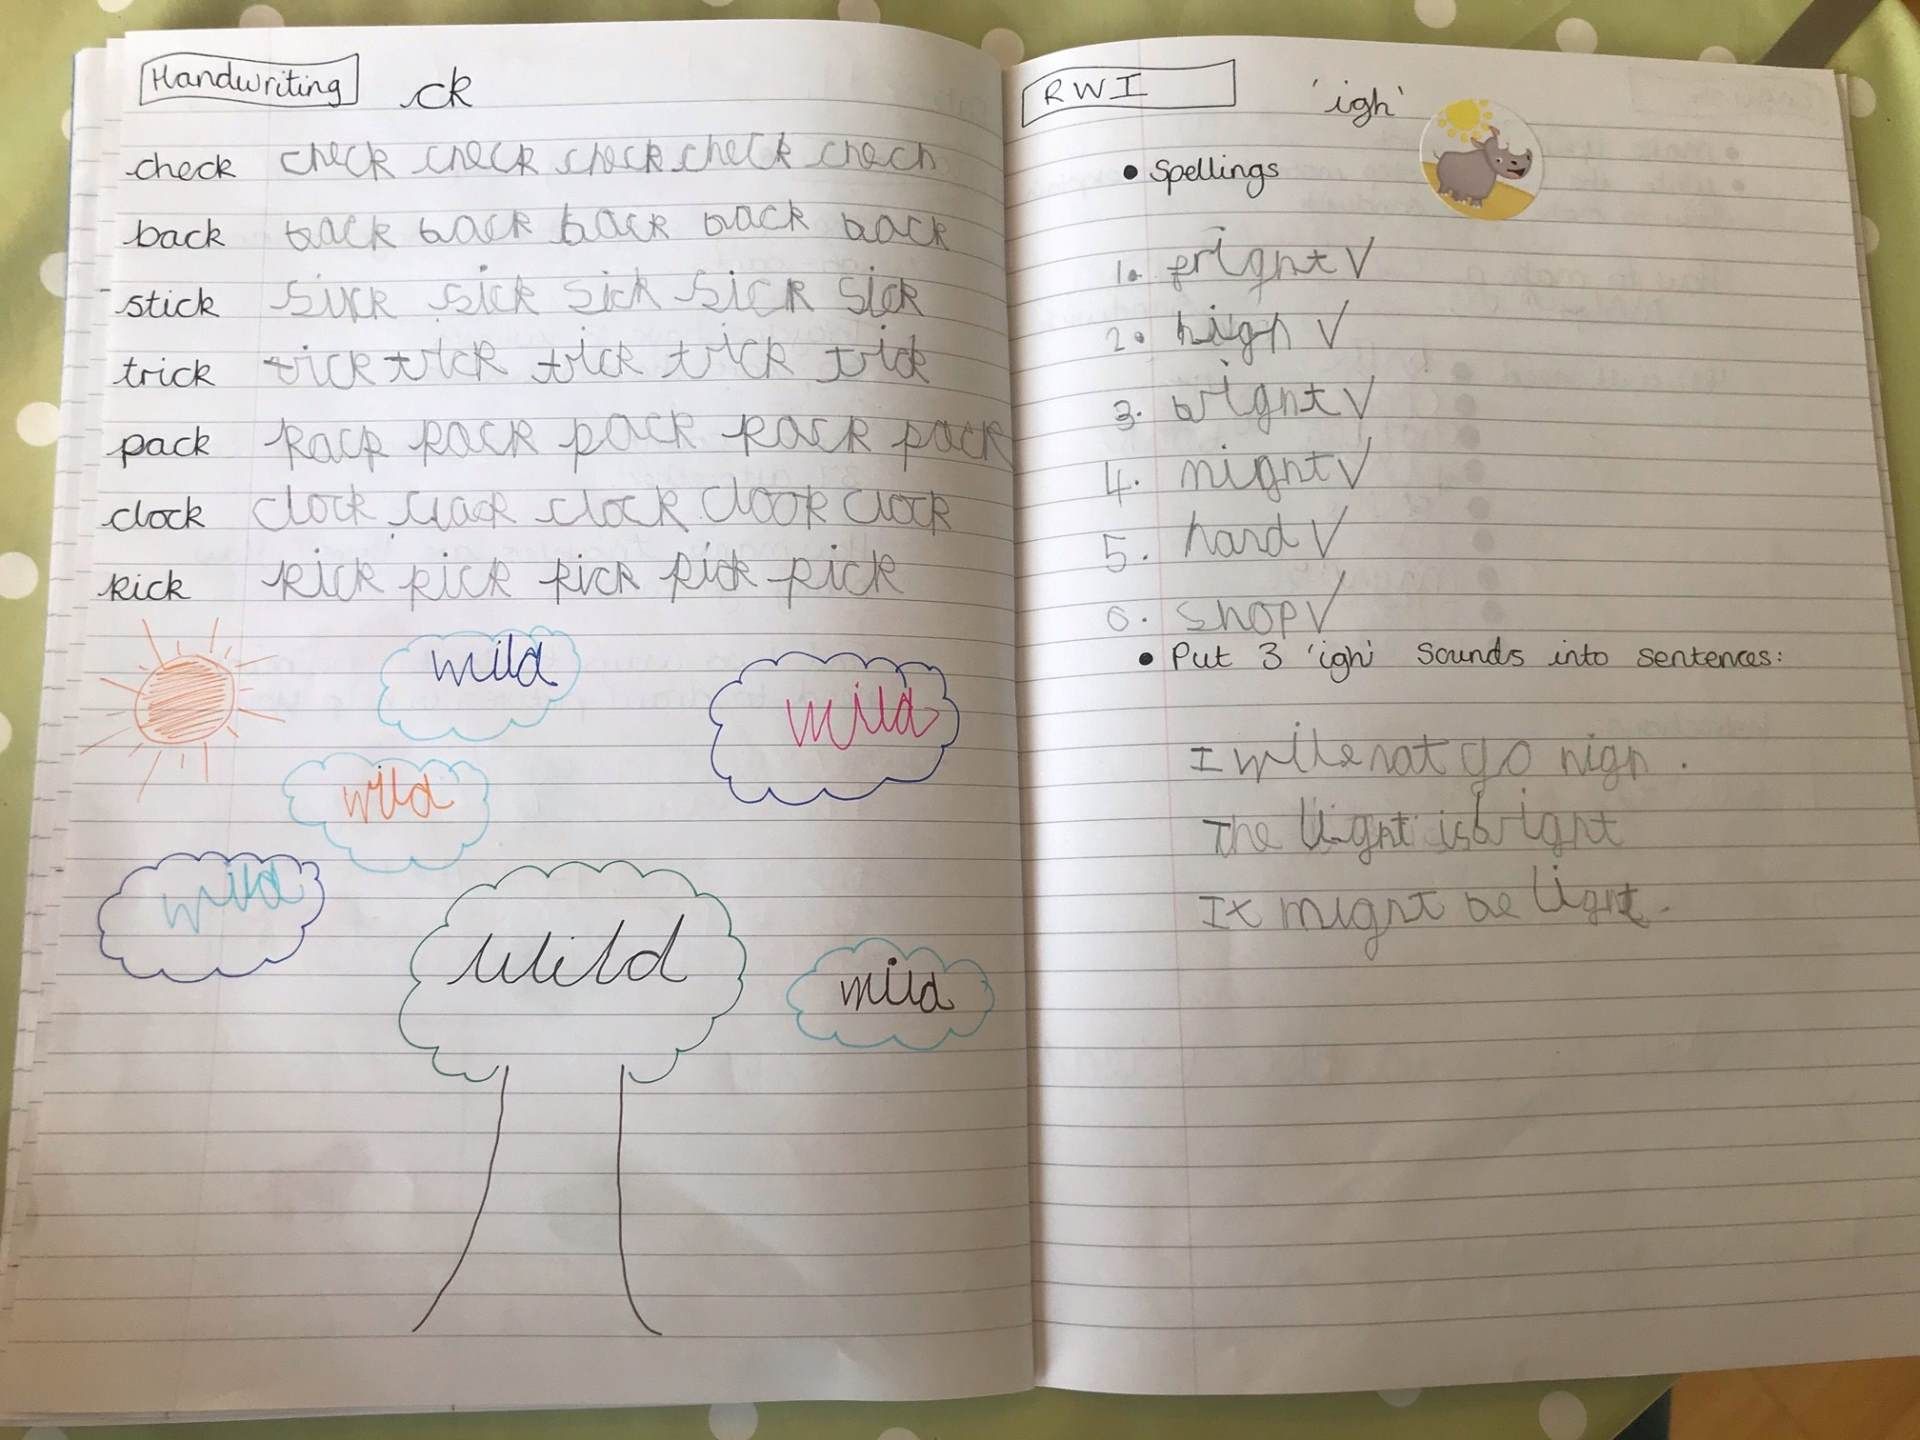 Handwriting ck
check check check check check check
back back back back back back
stick sick sick sick sick sick
trick trick trick trick trick trick
pack pack pack pack pack
clock clock clock clock clock
kick kick kick kick kick kick
wild
wild
wild
wild
wild
wild
RWI 'igh'
• Spellings
1. fright √
2. high √
3. bright √
4. night √
5. hard √
6. shop √
• Put 3 'igh' sounds into sentences:
I will not go high.
The light is bright
It might be light.